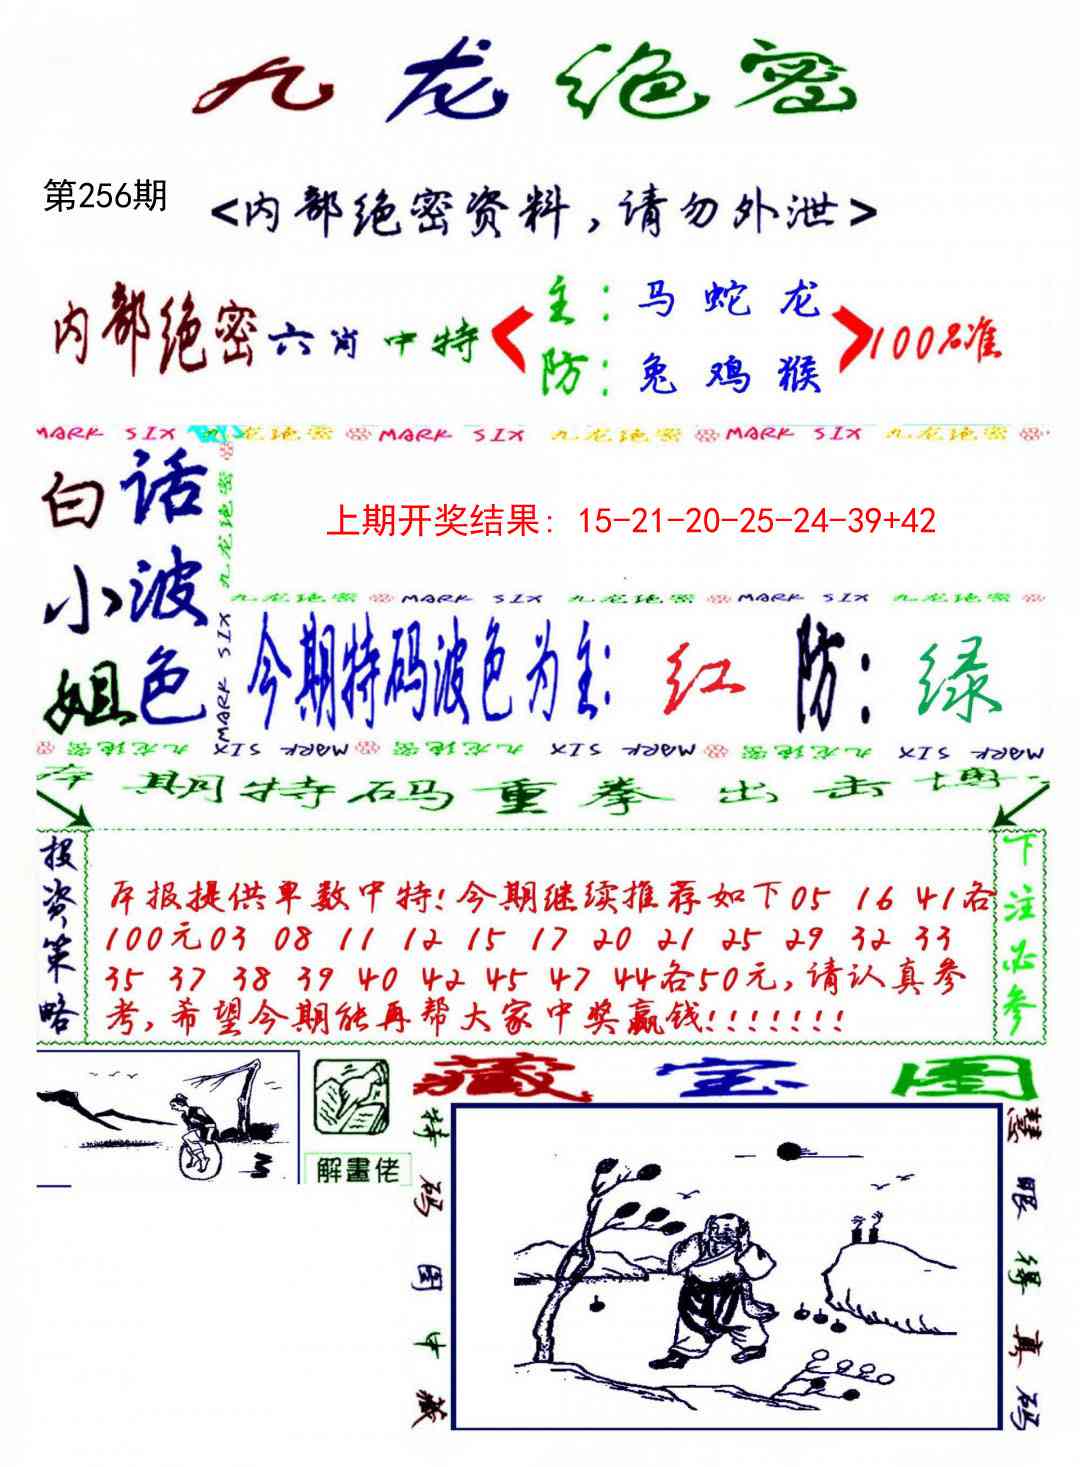 九龙绝密
第256期
<内部绝密资料，请勿外泄>
内部绝密六肖中特
主：马 蛇 龙
防：兔 鸡 猴
100%准
MARK SIX 九龙绝密 MARK SIX 九龙绝密 MARK SIX 九龙绝密
白话
小波
姐色
九龙绝密
MARK SIX
上期开奖结果: 15-21-20-25-24-39+42
九龙绝密 MARK SIX 九龙绝密 MARK SIX 九龙绝密
今期特码波色为主：红 防：绿
九龙绝密 MARK SIX 九龙绝密 MARK SIX 九龙绝密 MARK SIX
本期特码重拳出击博
投资策略
本报提供单数中特!今期继续推荐如下05 16 41各
100元03 08 11 12 15 17 20 21 25 29 32 33
35 37 38 39 40 42 45 47 44各50元,请认真参
考,希望今期能再帮大家中奖赢钱!!!!!!!
下注必参
藏宝图
解畫佬
特码图中藏
慧眼得真码